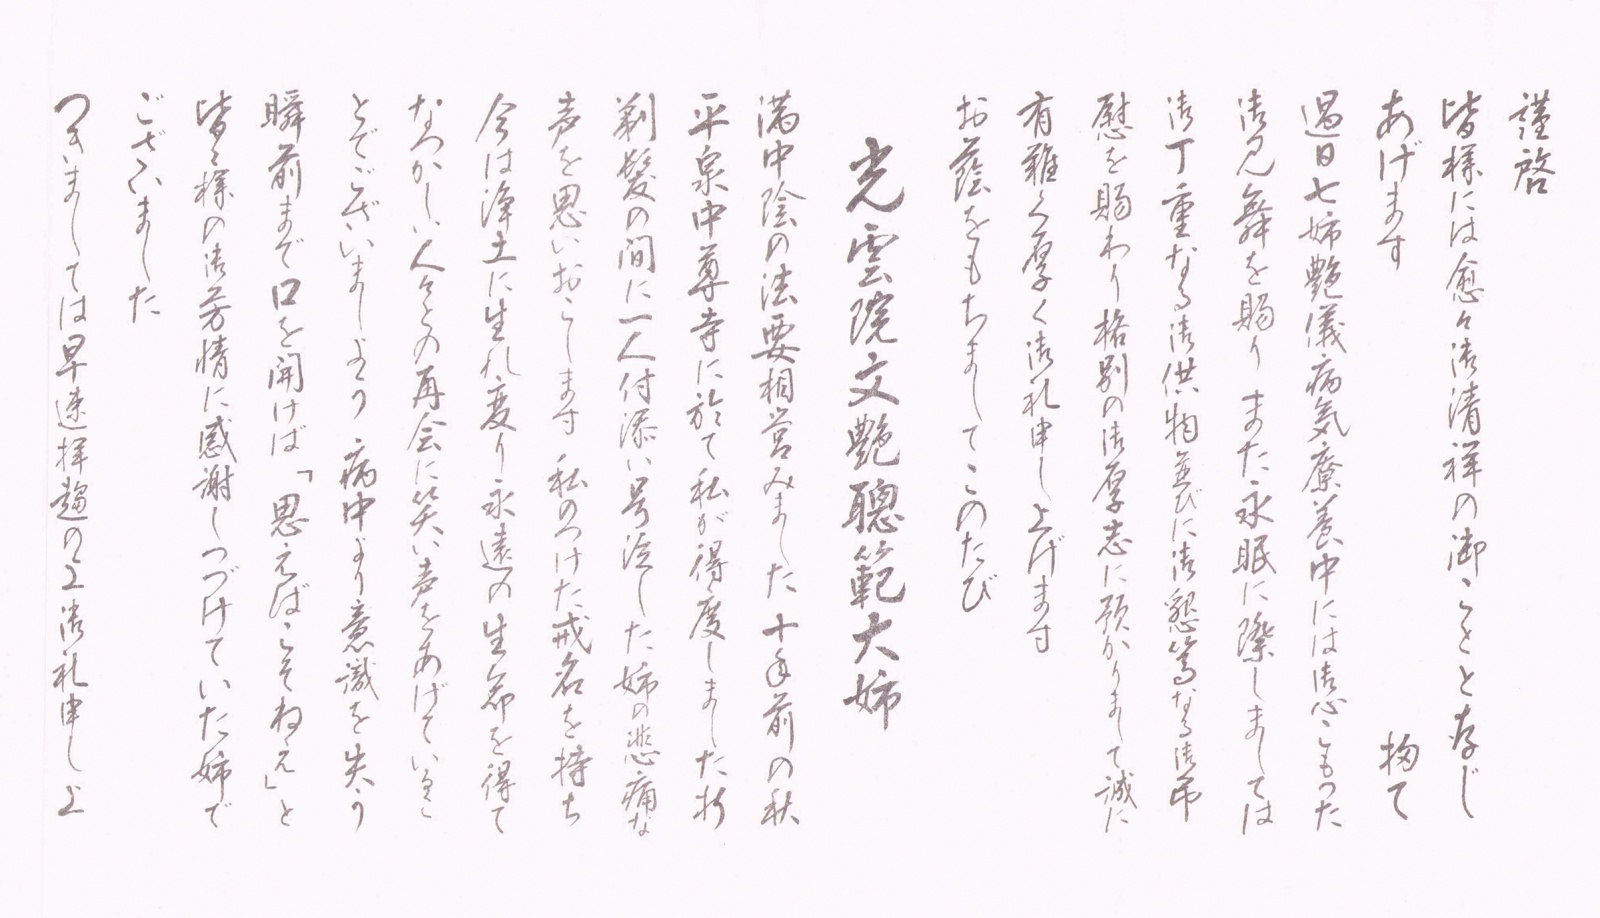 謹啓
皆様には愈々御清祥の御ことと存じ
あげます 扨て
過日亡姉艶儀病気療養中には御心こもった
御見舞を賜り また永眠に際しましては
御丁重なる御供物並びに御懇篤なる御弔
慰を賜わり格別の御厚志に預かりまして誠に
有難く厚く御礼申し上げます
お蔭をもちましてこのたび
光雲院文艶聰範大姉
満中陰の法要相営みました 十年前の秋
平泉中尊寺に於て私が得度しました折
剃髪の間に一人付添い号泣した姉の悲痛な
声を思いおこします 私のつけた戒名を持ち
今は浄土に生れ変り永遠の生命を得て
なつかしい人々との再会に笑い声をあげているこ
とでございましょう 病中より意識を失う
瞬前まで口を開けば「思えばこそねえ」と
皆々様の御芳情に感謝しつづけていた姉で
ございました
つきましては早速拝趨の上御礼申し上